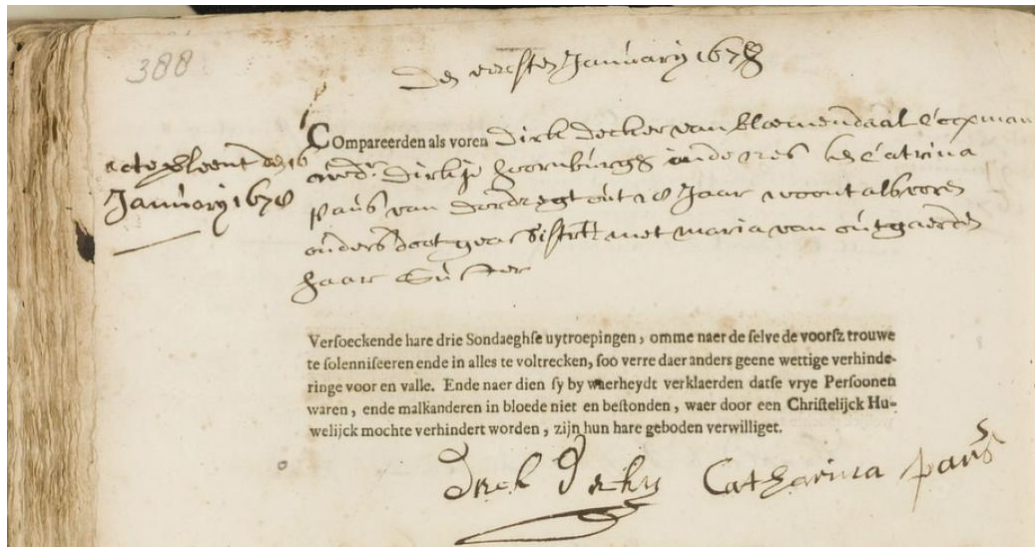 388
Den eersten January 1678
acte verleent den 16
January 1678
COmpareerden als voren Dirk Decker van bloemendaal Coopman
wedr. Dirkje hoornburgh op de nes & Catrina
paus van Dordregt out 28 Jaar woont als voren
ouders doot geassisteert met maria van
haar Suster
Versoeckende hare drie Sondaeghse uytroepingen, omme naer de selve de voorsz trouwe
te solenniseeren ende in alles te voltrecken, soo verre daer anders geene wettige verhinde-
ringe voor en valle. Ende naer dien sy by waerheydt verklaerden datse vrye Persoonen
waren, ende malkanderen in bloede niet en bestonden, waer door een Christelijck Hu-
welijck mochte verhindert worden, zijn hun hare geboden verwilliget.
Dirck Decker Catharina paus